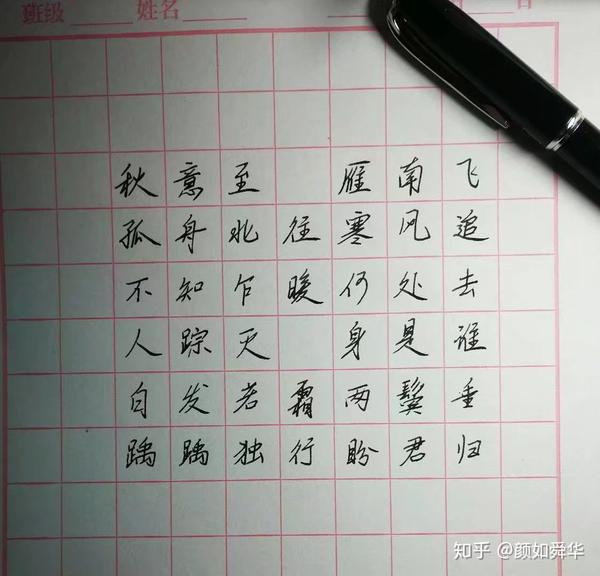 班级 姓名
秋意至 雁南飞
孤舟北往寒风追
不知乍暖何处去
人踪灭 身是谁
白发若霜两鬓垂
踽踽独行盼君归
知乎 @颜如舜华